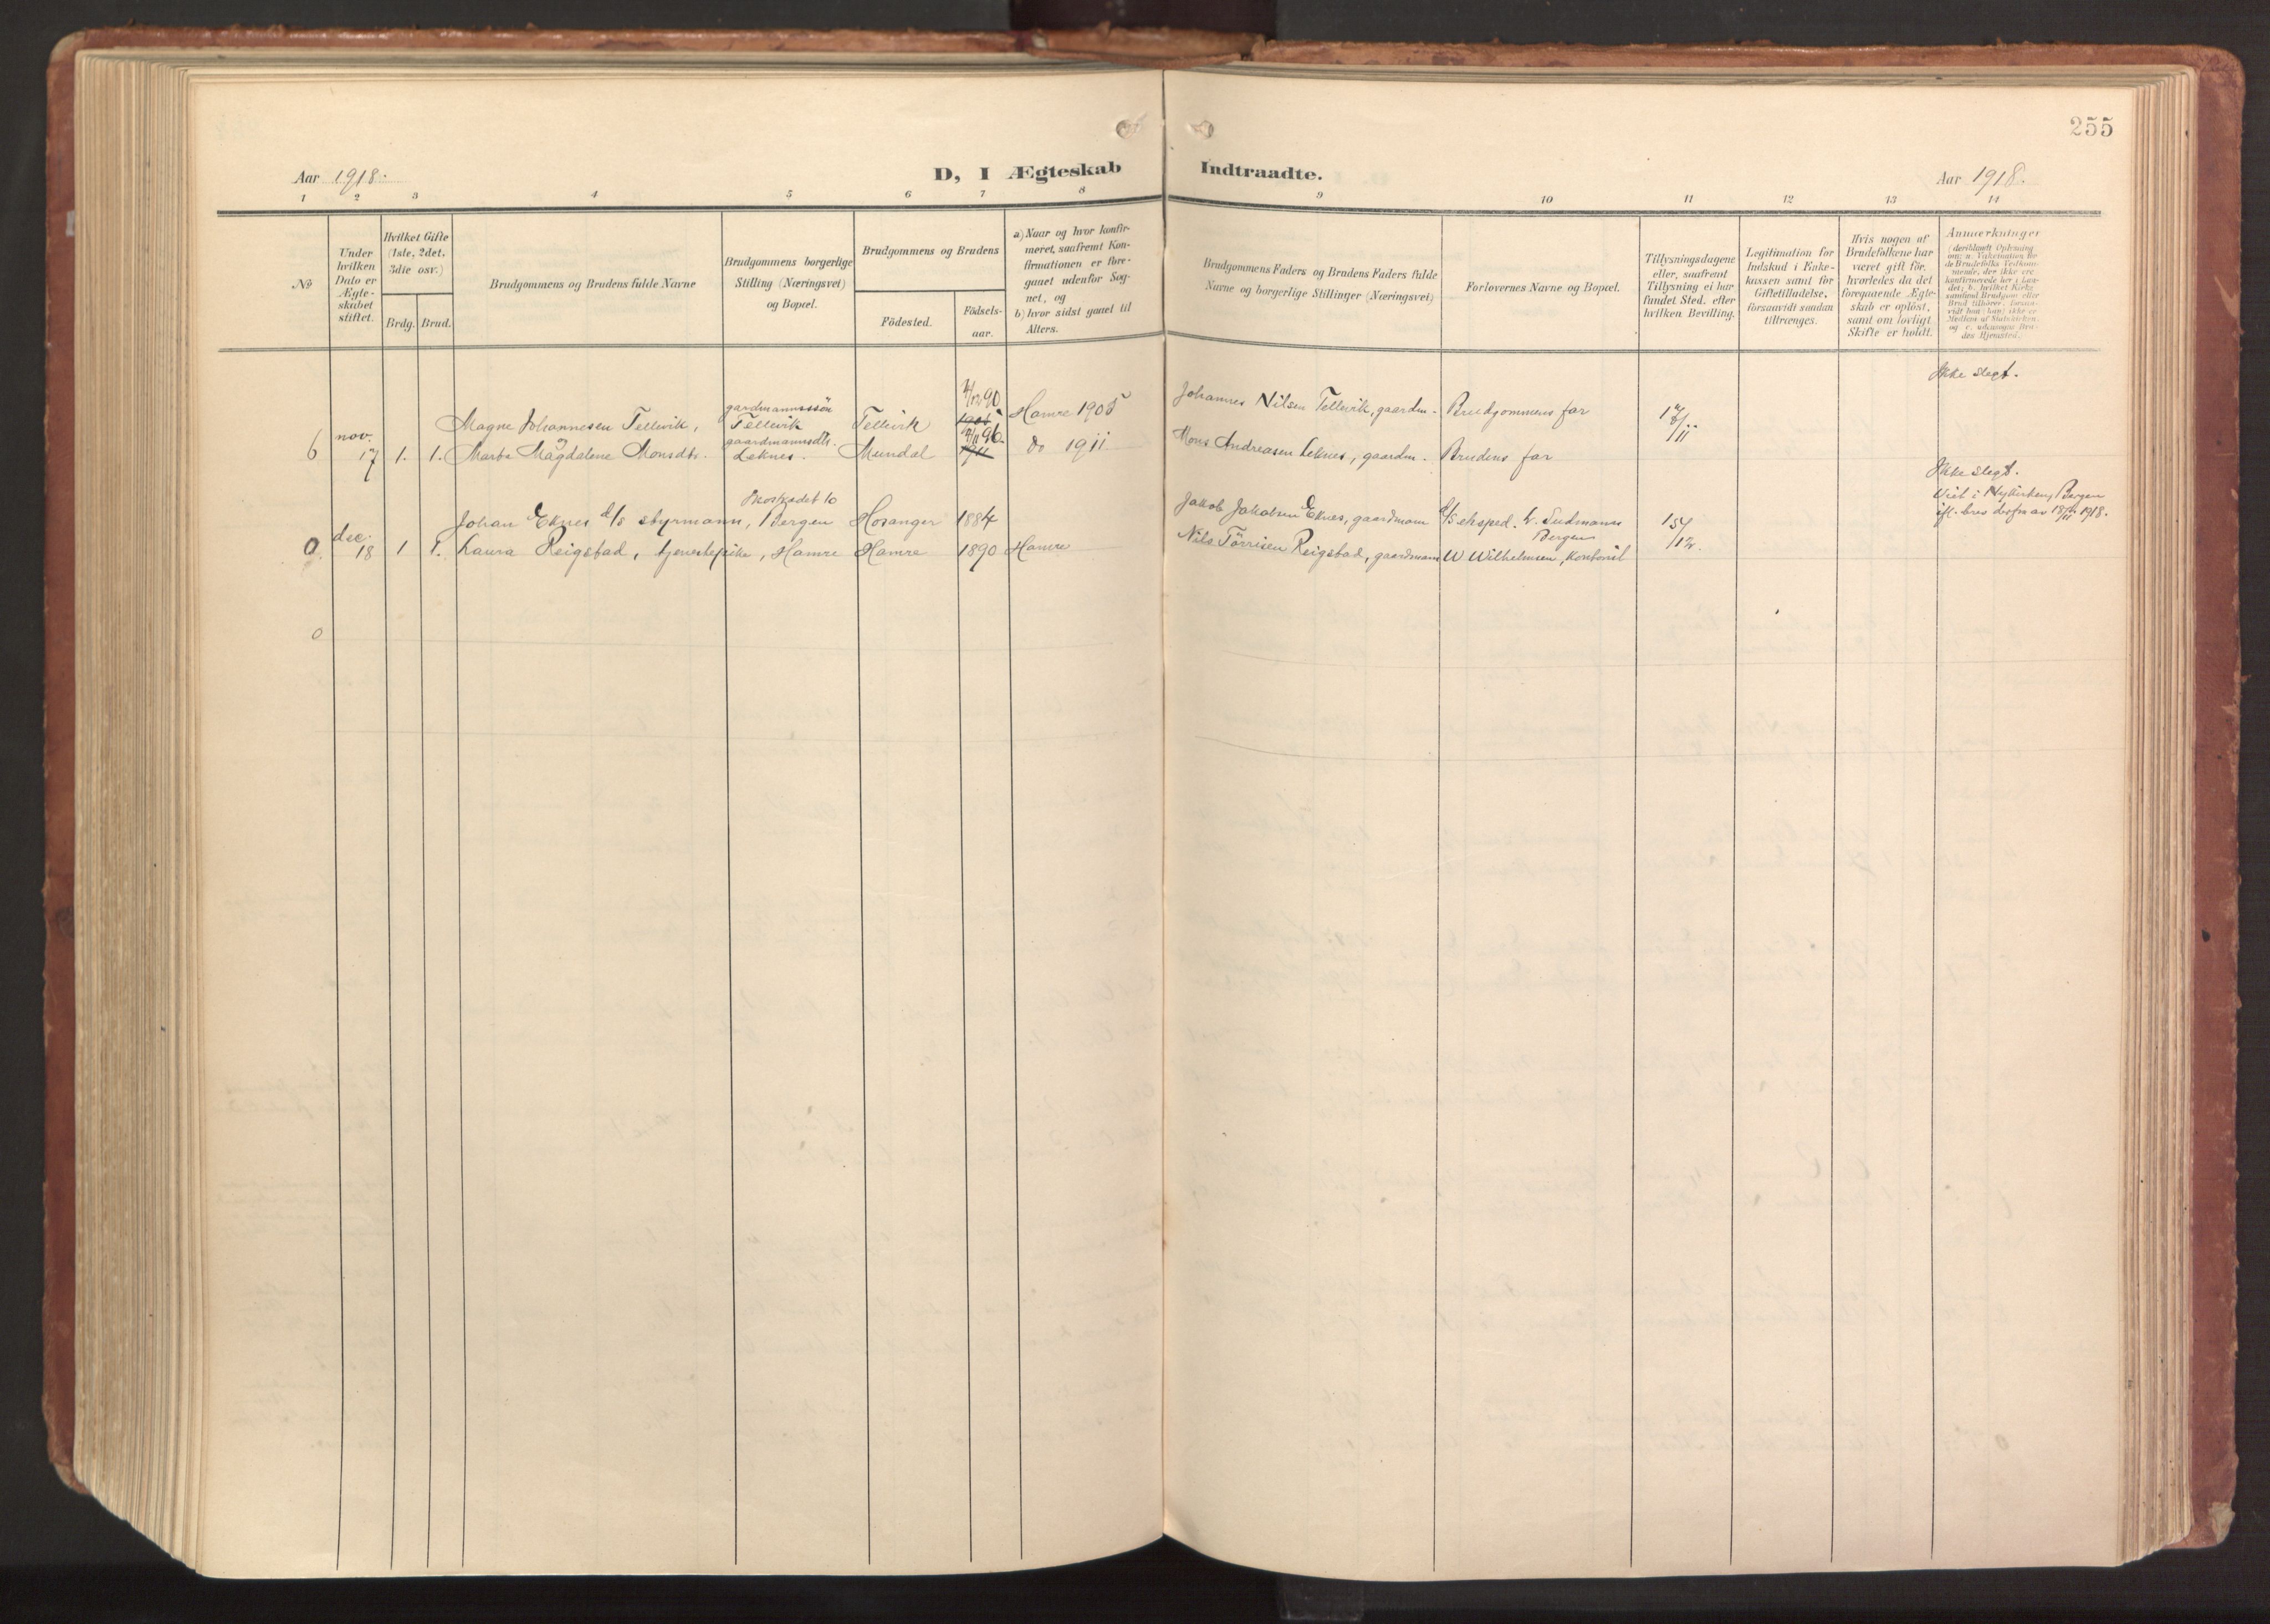 255
Aar 1918.
D, I Ægteskab
Indtraadte.
Aar 1918.
1 2 3 4 5 6 7 8 9 10 11 12 13 14
No
Under
hvilken
Dato er
Ægte-
skabet
stiftet.
Hvilket Gifte
(1ste, 2det,
3die osv.)
Brdg. Brud.
Brudgommens og Brudens fulde Navne
Brudgommens borgerlige
Stilling (Næringsvei)
og Bopæl.
Brudgommens og Brudens
Födested.
Födsels-
aar.
a) Naar og hvor konfir-
meret, saafremt Kon-
firmationen er fore-
gaaet udenfor Sog-
net, og
b) hvor sidst gaaet til
Alters.
Brudgommens Faders og Brudens Faders fulde
Navne og borgerlige Stillinger (Næringsvei)
Forlovernes Navne og Bopæl.
Tillysningsdagene
eller, saafremt
Tillysning ei har
fundet Sted, efter
hvilken Bevilling.
Legitimation for
Indskud i Enke-
kassen samt for
Giftetilladelse,
forsaavidt saadan
tiltrænges.
Hvis nogen af
Brudefolkene har
været gift för,
hvorledes da det
foregaaende Ægte-
skab er oplöst,
samt om lovligt
Skifte er holdt.
Anmærkninger
(deriblandt Oplysning
om: a. Vaksination for
de Brudefolks Vedkom-
mende, der ikke ere
konfirmerede her i Lan-
det; b. hvilket Kirke-
samfund Brudgom eller
Brud tilhører, forsaa-
vidt hun (han) ikke er
Medlem af Statskirken,
og c. udensogns Bru-
des Hjemsted.
Ikke slegt.
6 nov. 17 1. 1.
Magne Johannesen Tellevik, gardmannssön Tellevik Tellevik 4/12 90 1905 Hamre 1905 Johannes Nilsen Tellevik, gaardm. Brudgommens far
Marta Magdalene Monsdtr. gaardmannsdtr. Leknes. Mundal 96 1911 do 1911 Mons Andreasen Leknes, gaardm. Brudens far
Ikke slegt.
Viet i Nykirken, Bergen
ifl. brev derfra av 18/12 1918.
0 dec. 18 1 1.
Johan Eknes d/s styrmann, Bergen Hosanger 1884 Jakob Jakobsen Eknes, gaardmann d/s eksped. Sudmann Bergen 15/12.
Laura Reigstad, tjenestepike, Hamre Hamre 1890 Hamre Nils Törrisen Reigstad, gaardmann W Wilhelmsen, kontorist
0